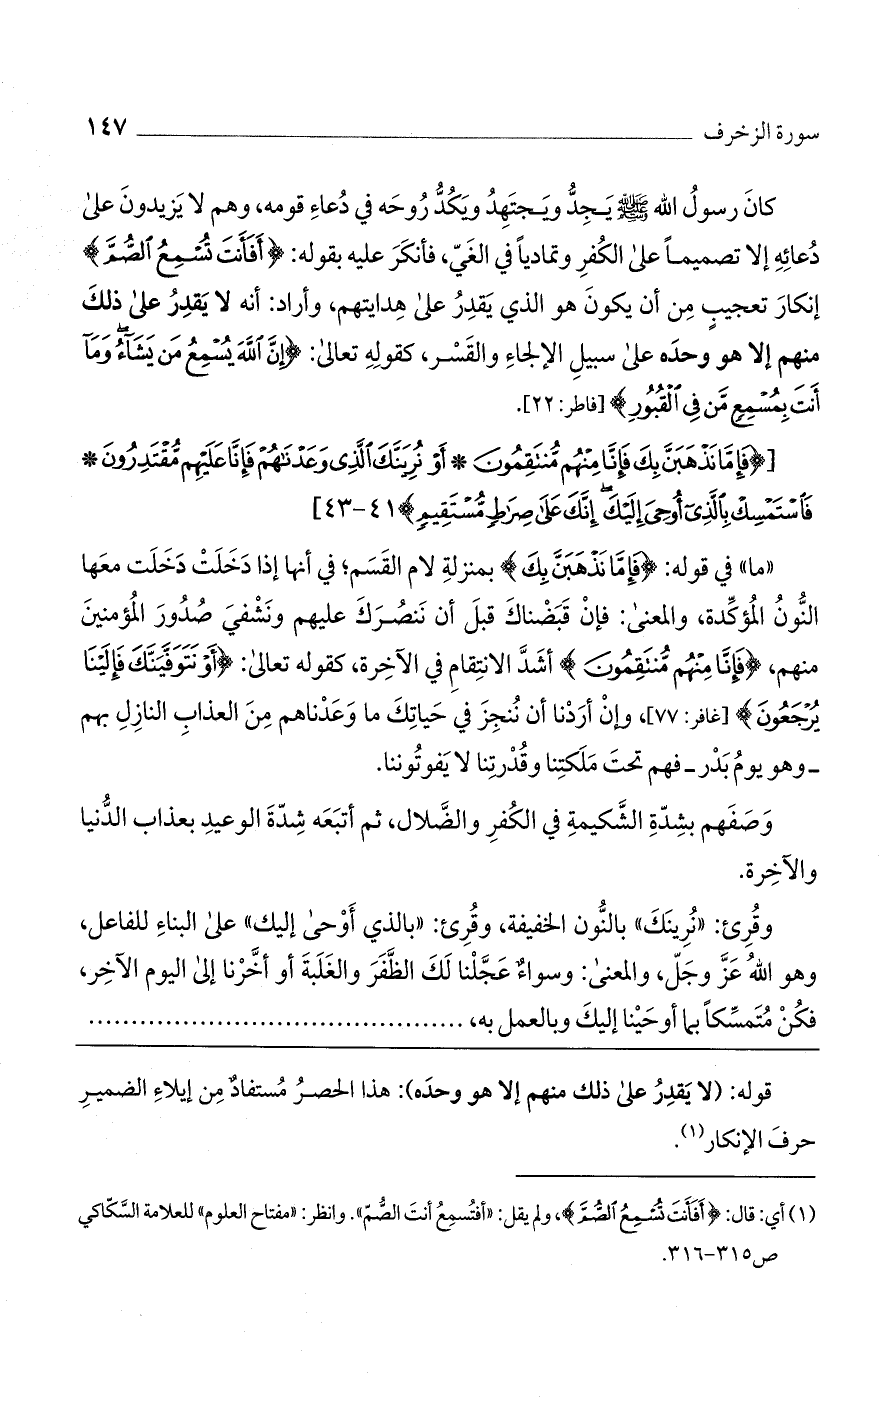 سورة الزخرف ١٤٧
كانَ رسولُ الله ﷺ يَـجِدُّ ويَـجتَهِدُ ويَكُدُّ رُوحَه في دُعاءِ قومه، وهم لا يَزيدونَ علىٰ
دُعائِهِ إلا تصميمـاً علىٰ الكُفرِ وتمادياً في الغَيّ، فأنكَرَ عليه بقوله: ﴿أَفَأَنتَ تُسْمِعُ ٱلصُّمَّ﴾
إنكارَ تعجيبٍ مِن أن يكونَ هو الذي يَقدِرُ علىٰ هِدايتهم، وأراد: أنه لا يَقدِرُ علىٰ ذلكَ
منهم إلا هو وحدَه علىٰ سبيلِ الإلجاءِ والقَسْـر، كقولِهِ تعالىٰ: ﴿إِنَّ ٱللَّهَ يُسْمِعُ مَن يَشَآءُ ۖ وَمَآ
أَنتَ بِمُسْمِعٍ مَّن فِى ٱلْقُبُورِ﴾ [فاطر: ٢٢].
[﴿فَإِمَّا نَذْهَبَنَّ بِكَ فَإِنَّا مِنْهُم مُّنتَقِمُونَ * أَوْ نُرِيَنَّكَ ٱلَّذِى وَعَدْنَٰهُمْ فَإِنَّا عَلَيْهِم مُّقْتَدِرُونَ *
فَٱسْتَمْسِكْ بِٱلَّذِىٓ أُوحِىَ إِلَيْكَ ۖ إِنَّكَ عَلَىٰ صِرَٰطٍ مُّسْتَقِيمٍ﴾ ٤١-٤٣]
«ما» في قوله: ﴿فَإِمَّا نَذْهَبَنَّ بِكَ﴾ بمنزلةِ لام القَسَم؛ في أنها إذا دَخَلَتْ دَخَلَت معَها
النُّونُ المُؤكِّدة، والمعنىٰ: فإنْ قَبَضْناكَ قبلَ أن نَنصُـرَكَ عليهم ونَشْفيَ صُدُورَ المُؤمنينَ
منهم، ﴿فَإِنَّا مِنْهُم مُّنتَقِمُونَ﴾ أشدَّ الانتِقامِ في الآخِرة، كقوله تعالىٰ: ﴿أَوْ نَتَوَفَّيَنَّكَ فَإِلَيْنَا
يُرْجَعُونَ﴾ [غافر: ٧٧]، وإنْ أرَدْنا أن نُنجِزَ في حَياتِكَ ما وَعَدْناهم مِنَ العذابِ النازِلِ بهم
ـ وهو يومُ بَدْر ـ فهم تحتَ مَلَكتِنا وقُدْرتِنا لا يَفوتُوننا.
وَصَفَهم بشِدّةِ الشَّكيمةِ في الكُفرِ والضَّلال، ثم أتبَعَه شِدّةَ الوعيدِ بعذاب الدُّنيا
والآخِرة.
وقُرِئ: «نُرِينَكَ» بالنُّون الخفيفة، وقُرِئ: «بالذي أَوْحىٰ إليك» علىٰ البناءِ للفاعل،
وهو اللهُ عَزَّ وجَلّ، والمعنىٰ: وسواءٌ عَجَّلْنا لَكَ الظَّفَرَ والغَلَبةَ أو أخَّرْنا إلىٰ اليوم الآخِر،
فكُنْ مُتَمسِّكاً بما أوحَيْنا إليكَ وبالعمل به، ..........................................
قوله: (لا يَقدِرُ علىٰ ذلك منهم إلا هو وحدَه): هذا الحصرُ مُستفادٌ مِن إيلاءِ الضميـرِ
حرفَ الإنكار(١).
(١) أي: قال: ﴿أَفَأَنتَ تُسْمِعُ ٱلصُّمَّ﴾، ولم يقل: «أفتُسمِعُ أنتَ الصُّمّ». وانظر: «مفتاح العلوم» للعلامة السَّكّاكي
ص٣١٥-٣١٦.